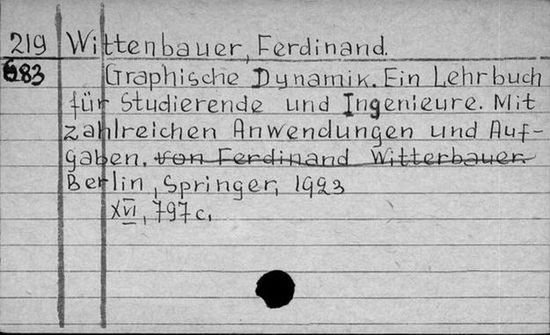 219 Wittenbauer, Ferdinand.
683 Graphische Dynamik. Ein Lehrbuch
für Studierende und Ingenieure. Mit
zahlreichen Anwendungen und Auf-
gaben. von Ferdinand Witterbauer.
Berlin, Springer, 1923
XVI, 797 c.